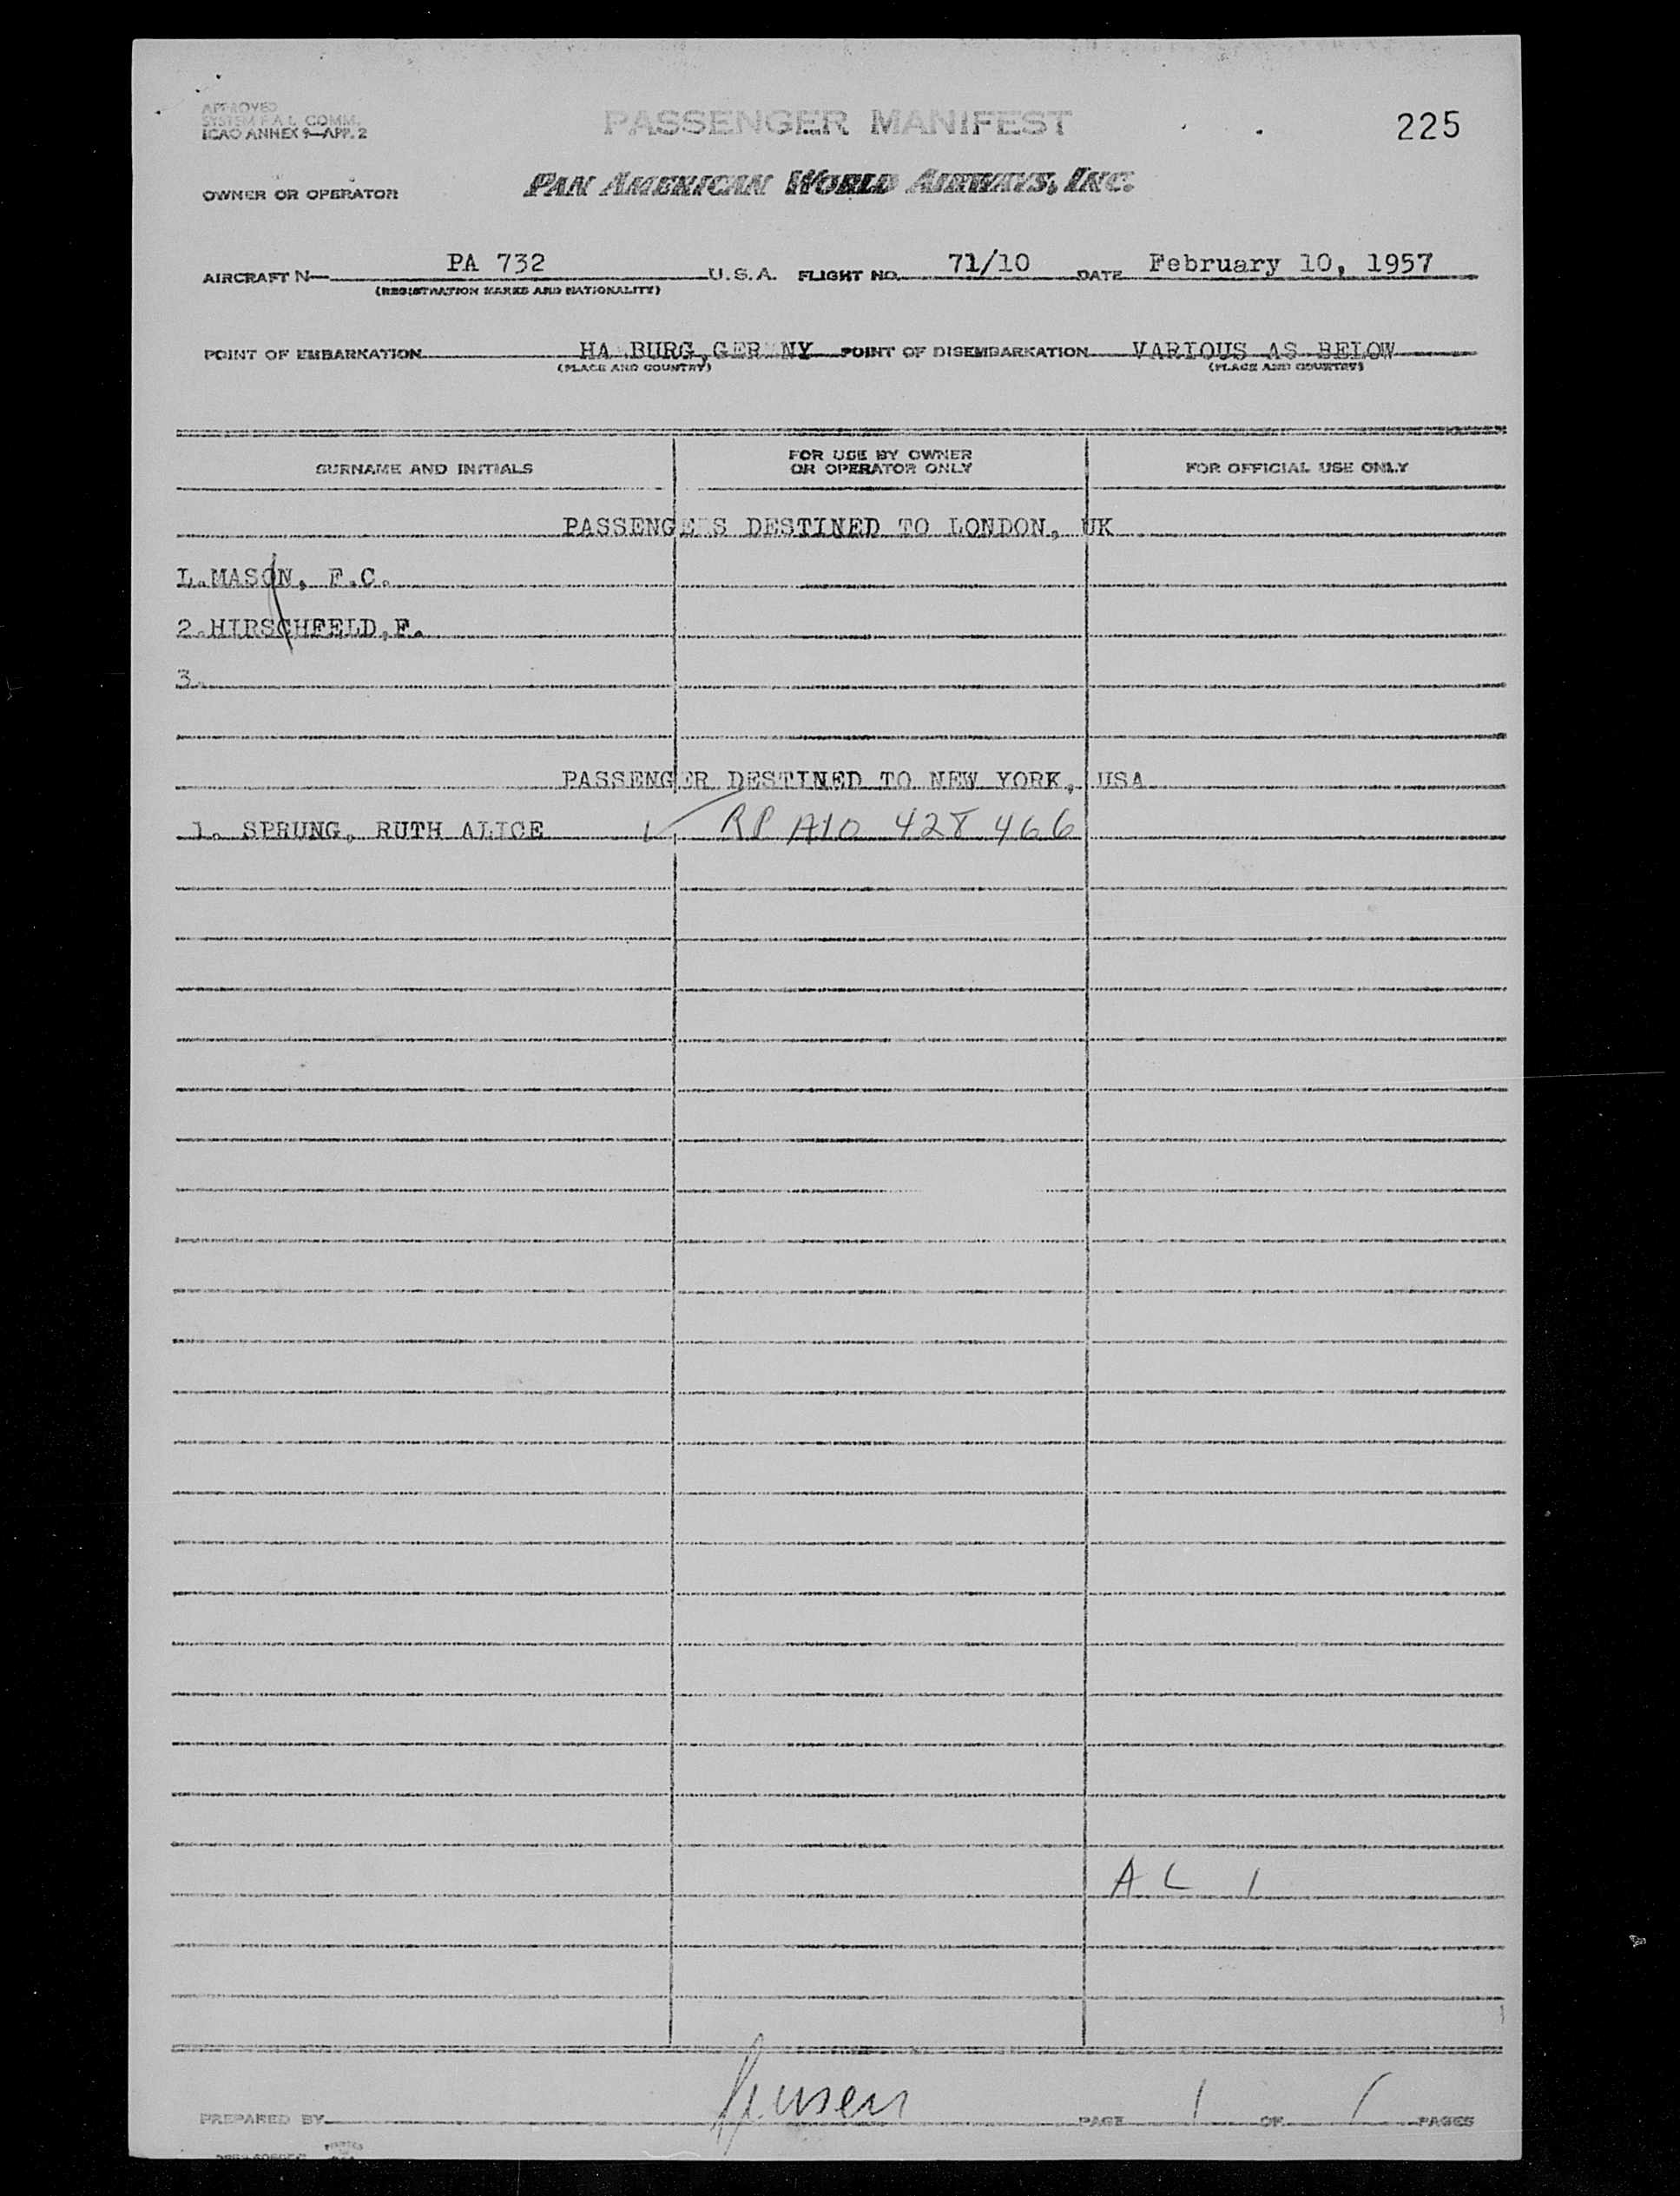 APPROVED
SYSTEM F.A.L. COMM.
ICAO ANNEX 9—APP. 2
PASSENGER MANIFEST
225
OWNER OR OPERATOR
PAN AMERICAN WORLD AIRWAYS, INC.
AIRCRAFT N— PA 732 U.S.A. FLIGHT NO. 71/10 DATE February 10, 1957
(REGISTRATION MARKS AND NATIONALITY)
POINT OF EMBARKATION HA BURG, GER NY POINT OF DISEMBARKATION VARIOUS AS BELOW
(PLACE AND COUNTRY) (PLACE AND COUNTRY)
SURNAME AND INITIALS FOR USE BY OWNER OR OPERATOR ONLY FOR OFFICIAL USE ONLY
PASSENGE S DESTINED TO LONDON, UK
1.MASON, F.C.
2.HIRSCHFELD,F.
3.
PASSENGER DESTINED TO NEW YORK, USA
1. SPRUNG, RUTH ALICE ✓ RP A10 428 466
A L 1
PREPARED BY PAGE 1 OF 1 PAGES